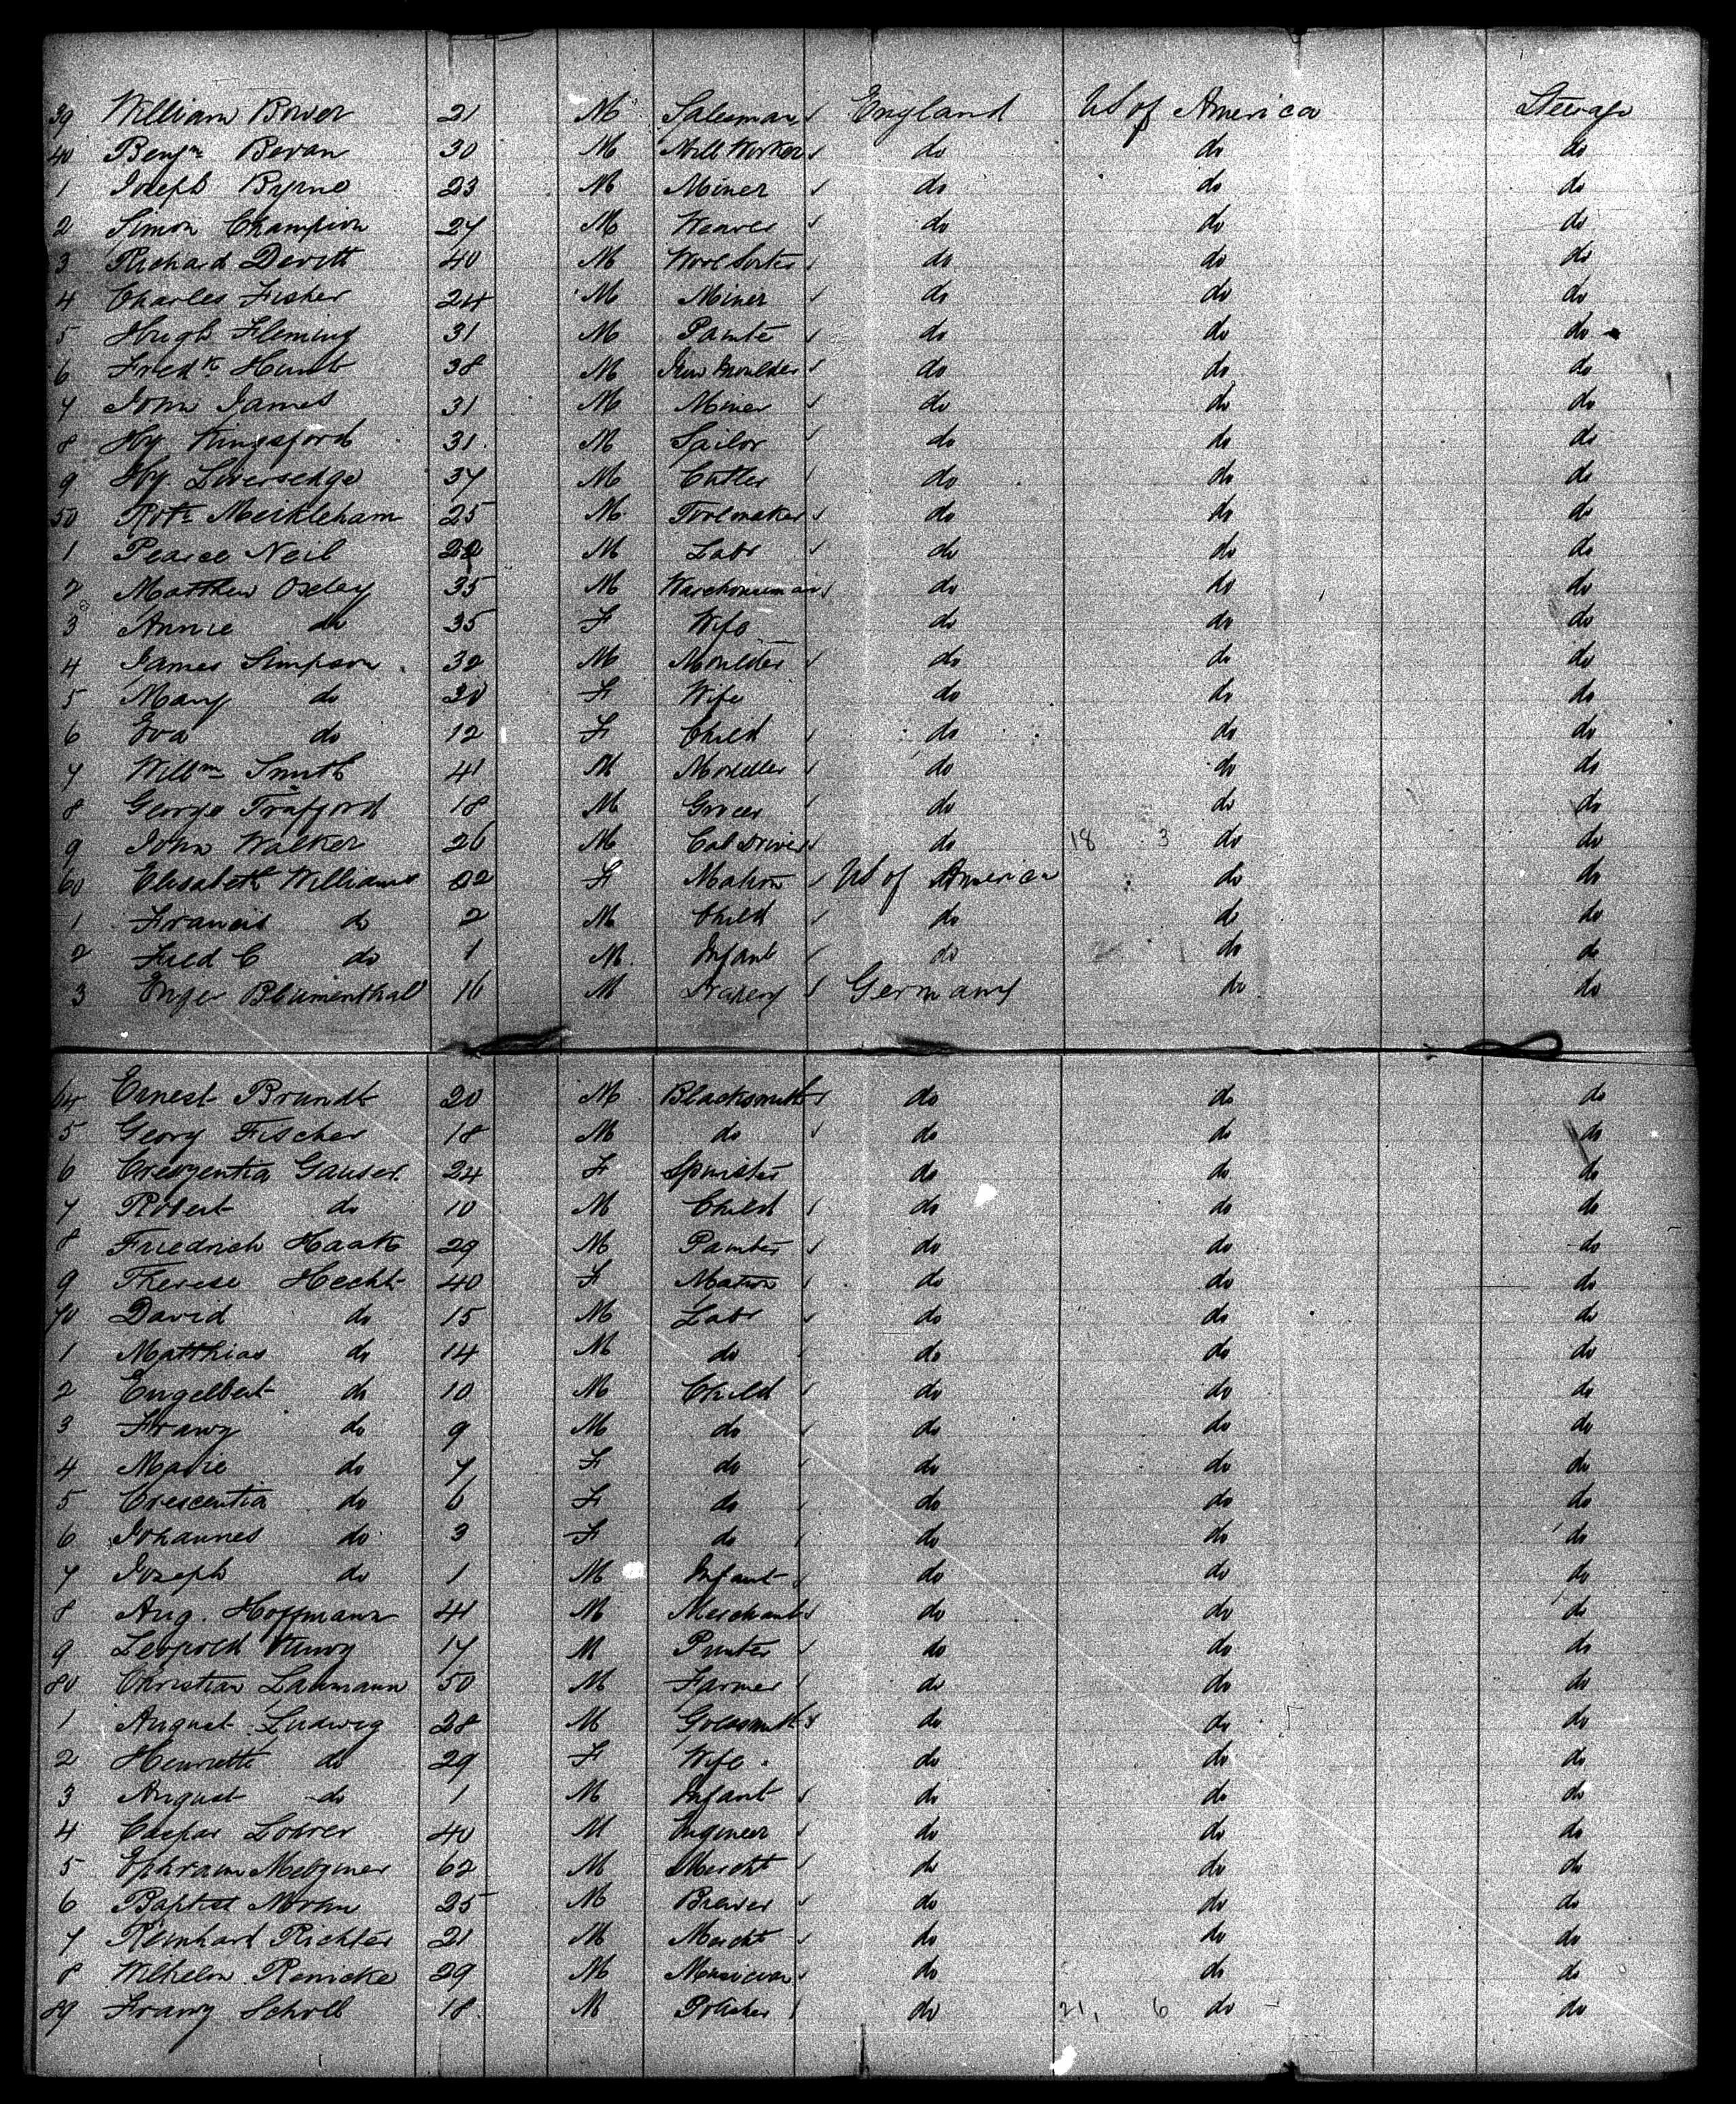 39 William Bower 21 M Salesman England US of America Steerage
40 Benjn Bevan 30 M Mill Worker do do do
1 Joseph Byrne 23 M Miner do do do
2 Simon Champion 27 M Weaver do do do
3 Richard Devitt 40 M Wool Sorter do do do
4 Charles Fisher 24 M Miner do do do
5 Hugh Fleming 31 M Painter do do do
6 Fredk Hunt 38 M Iron Moulder do do do
7 John James 31 M Miner do do do
8 Hy Kingsford 31 M Sailor do do do
9 Hy. Liversedge 37 M Cutler do do do
50 Robt Meikleham 25 M Toolmaker do do do
1 Pearce Neil 22 M Labr do do do
2 Matthew Oxley 35 M Warehouseman do do do
3 Annie do 35 F Wife do do do
4 James Simpson 32 M Moulder do do do
5 Mary do 30 F Wife do do do
6 Eva do 12 F Child do do do
7 Willm Smith 41 M Modeller do do do
8 George Trafford 18 M Grocer do do do
9 John Walker 26 M Cab Driver do 18 3 do do
60 Elisabeth Williams 22 F Matron US of America do do
1 Francis do 2 M Child do do do
2 Fred C do 1 M Infant do do do
3 Blumenthal 16 M Drapery Germany do do
64 Ernest Brandt 20 M Blacksmith do do do
5 Georg Fischer 18 M do do do do
6 Crescentia Gauser 24 F Spinster do do do
7 Robert do 10 M Child do do do
8 Friedrich Haak 29 M Painter do do do
9 Therese Hecht 40 F Matron do do do
70 David do 15 M Labr do do do
1 Matthias do 14 M do do do do
2 Engelbert do 10 M Child do do do
3 Franz do 9 M do do do do
4 Marie do 7 F do do do do
5 Crescentia do 6 F do do do do
6 Johannes do 3 F do do do do
7 Joseph do 1 M Infant do do do
8 Aug. Hoffmann 41 M Merchant do do do
9 Leopold 17 M Printer do do do
80 Christian Laumann 50 M Farmer do do do
1 August Ludwig 28 M Goldsmith do do do
2 Henriette do 29 F Wife do do do
3 August do 1 M Infant do do do
4 Caspar Lohrer 40 M Engineer do do do
5 Ephraim Metzner 62 M Mercht do do do
6 Baptist Mohn 25 M Brewer do do do
7 Reinhard Richter 21 M Mercht do do do
8 Wilhelm Renicke 29 M Musician do do do
89 Franz Scholl 18 M do 21, 6 do do